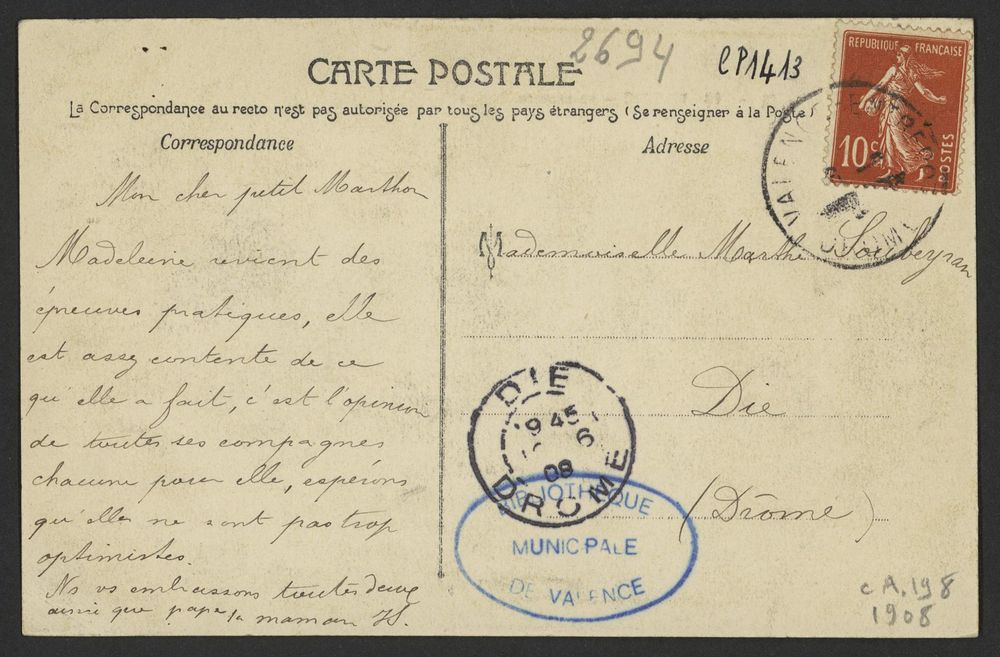 2694
CP1413
CARTE POSTALE
REPUBLIQUE FRANÇAISE
10c
POSTES
La Correspondance au recto n'est pas autorisée par tous les pays étrangers (Se renseigner à la Poste)
Correspondance
Mon cher petit Marthon
Madeleine revient des
épreuves pratiques, elle
est assez contente de ce
qu'elle a fait, c'est l'opinion
de toutes ses compagnes
chacune pour elle, espérons
qu'elles ne sont pas trop
optimistes.
Ns vs embrassons toutes deux
ainsi que papa
ta maman JS.
Adresse
Mademoiselle Marthe Souveyran
Die
(Drôme)
VALENCE
DROME
DIE
9 45
6
08
DROME
BIBLIOTHEQUE
MUNICIPALE
DE VALENCE
CA.198
1908